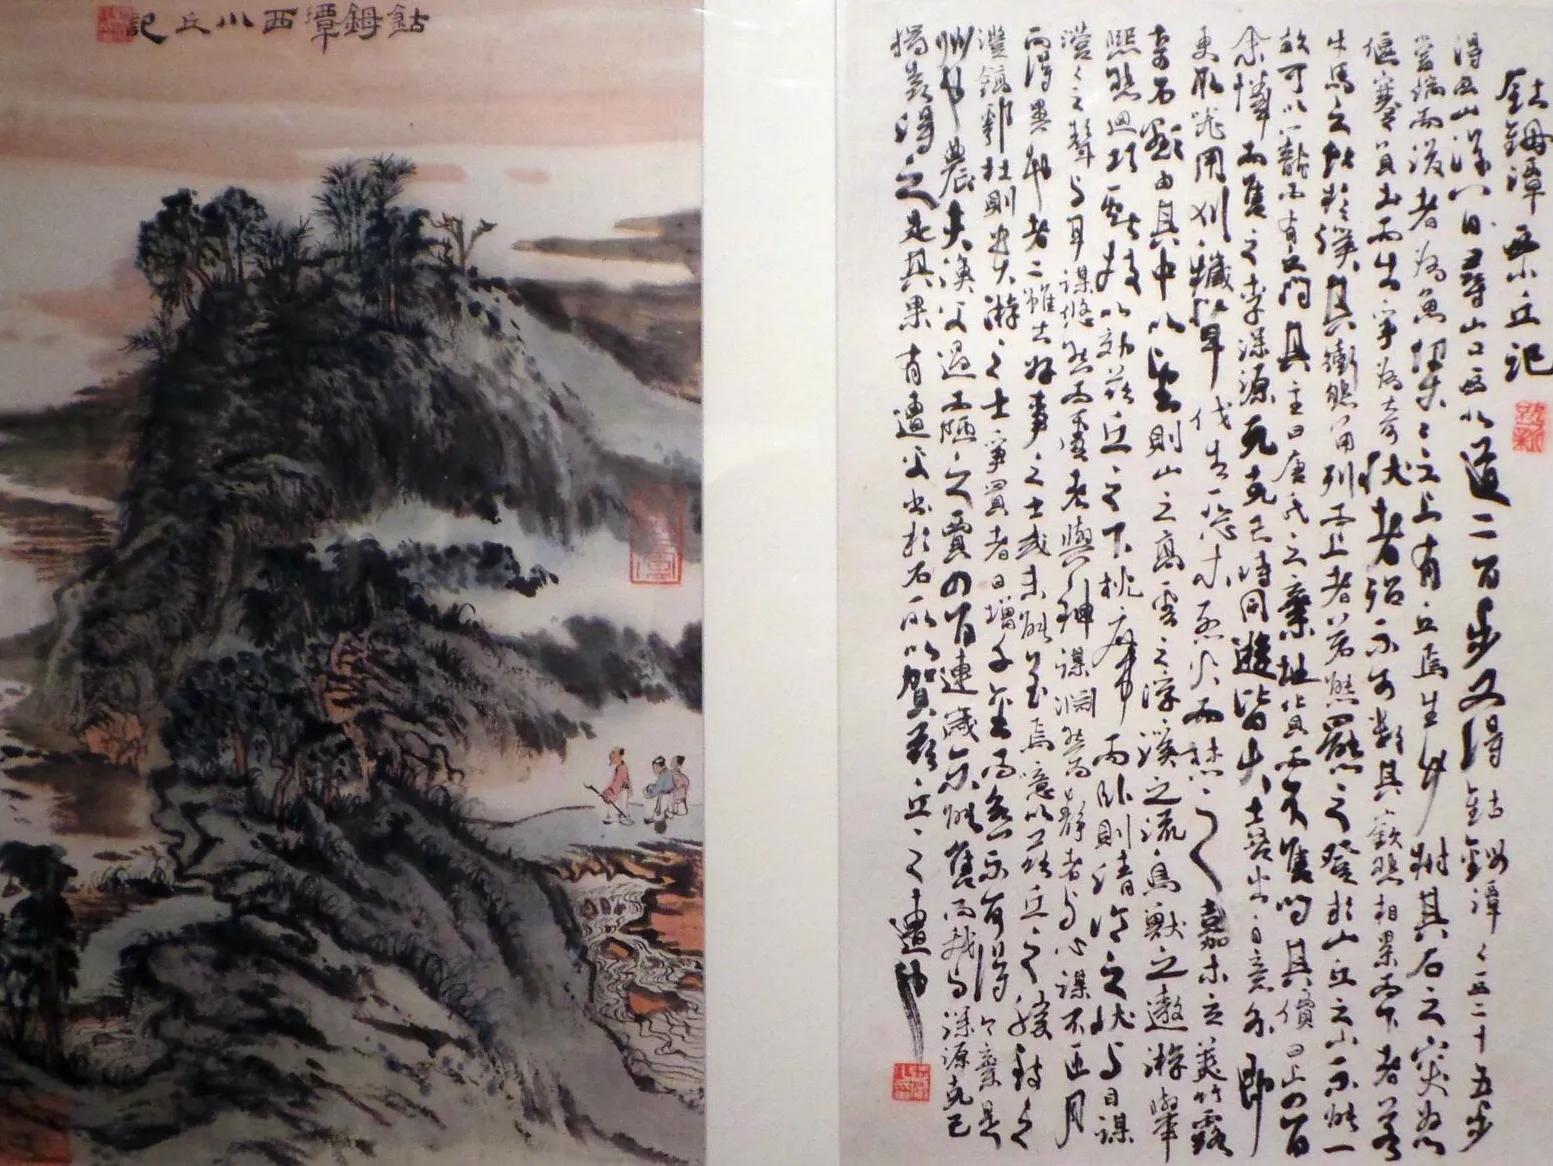 鈷鉧潭西小丘記
鈷鉧潭西小丘記
得西山後八日尋山口西北道二百步又得鈷鉧潭々西二十五步
當湍而浚者為魚梁々之上有丘焉生竹樹其石之突怒
偃蹇負土而出爭為奇狀者殆不可數其嶔然相累而下者若
牛馬之飲於溪其衝然角列而上者若熊羆之登於山丘之小不能一
畝可以籠而有之問其主曰唐氏之棄地貨而不售問其價曰止四百
余憐而售之李深源元克己時同遊皆大喜出自意外即
更取器用刈穢草伐去惡木烈火而焚之嘉木立美竹露
奇石顯由其中以望則山之高雲之浮溪之流鳥獸之遨遊舉
熙熙迴巧獻技以效茲丘之下枕席而臥則清泠之狀與目謀
瀯々之聲與耳謀悠然而虛者與神謀淵然而靜者與心謀不匝月
而得異地者二雖古好事之士或未能至焉噫以茲丘之勝致之
灃鎬鄠杜則貴游之士爭買者日增千金而愈不可得今棄是
州也農夫漁父過而陋之賈四百連歲不能售而我與深源克己
獨喜得之是其果有遭乎書於石所以賀茲丘之遭也